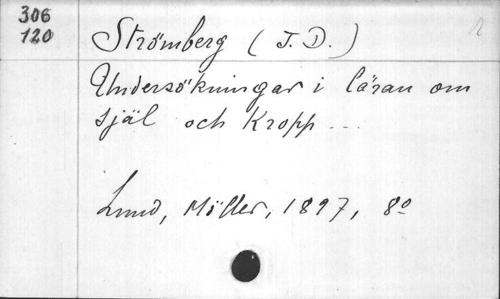 306
120
Strömberg (J. D.)
Undersökningar i läran om
själ och Kropp ...
Lund, Möller, 1897, 8º